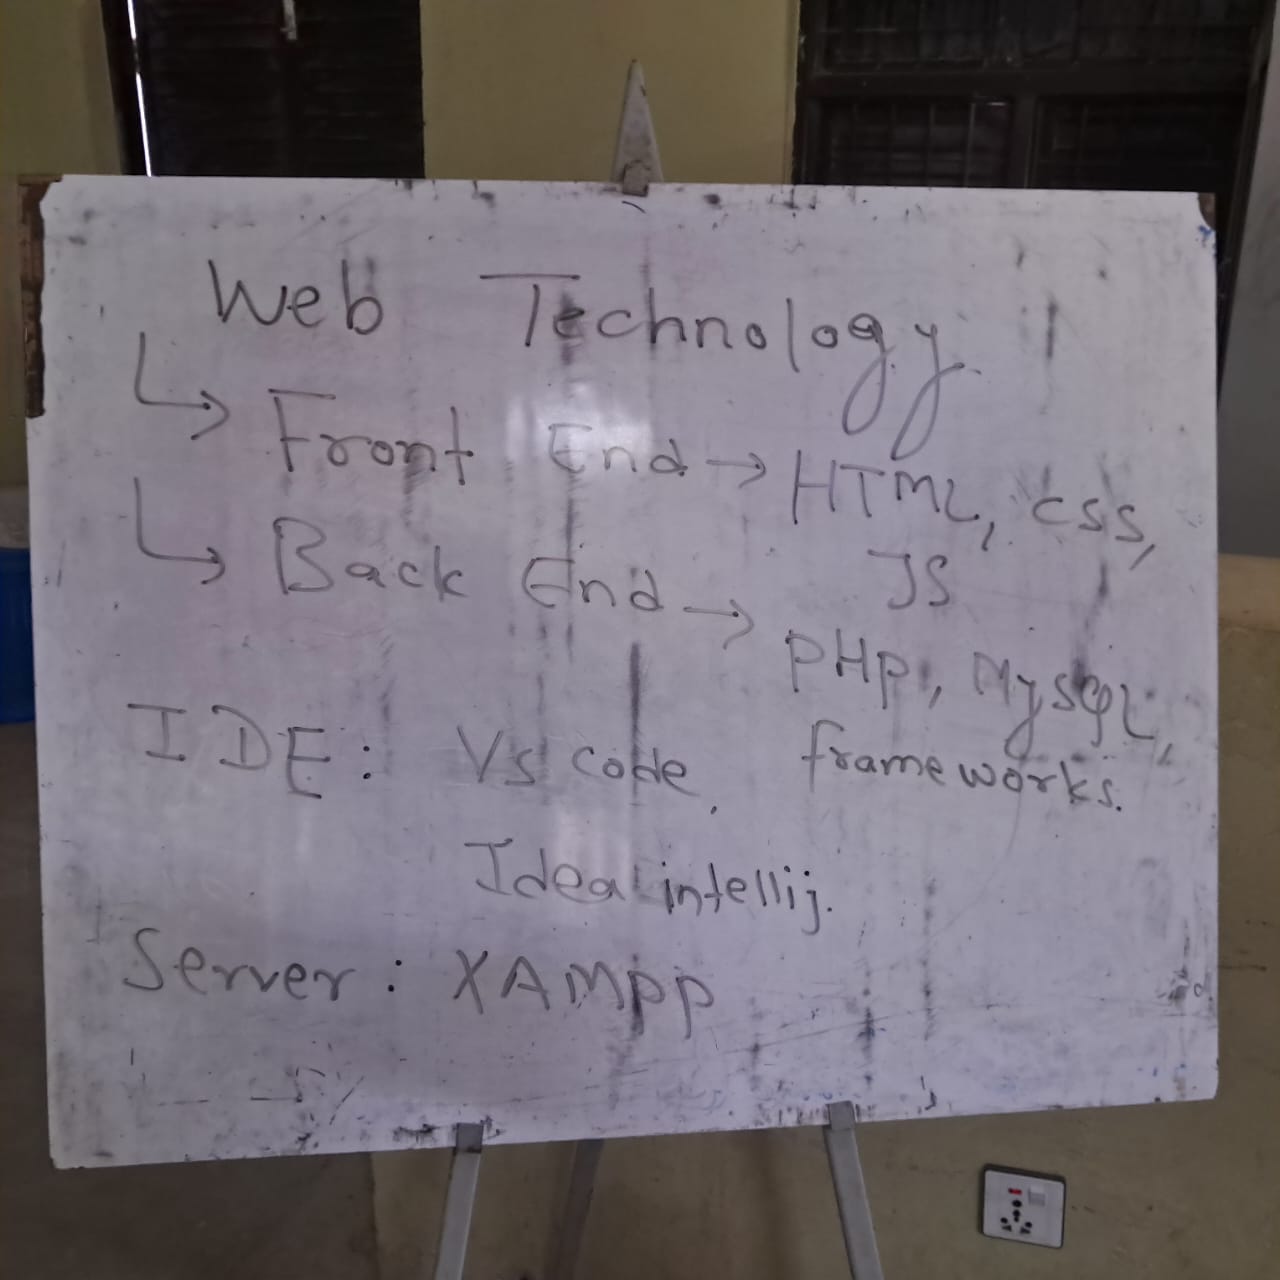 Web Technology
↳ Front End → HTML, CSS,
JS
↳ Back End → PHP, MySQL,
frameworks.
IDE: Vs code,
Idea intellij.
Server: XAMPP